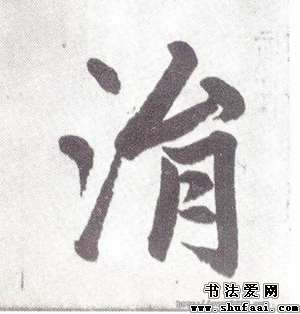 涓
书法爱网
www.shufaai.com